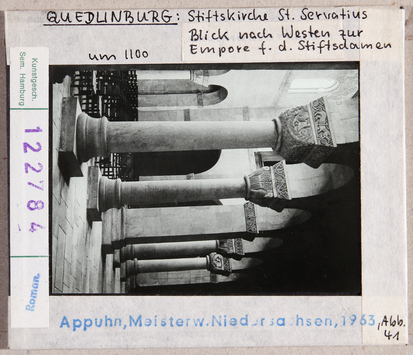 QUEDLINBURG: Stiftskirche St. Servatius
Blick nach Westen zur
um 1100 Empore f. d. Stiftsdamen
Kunstgesch.
Sem. Hamburg
122784
Roman.
Appuhn, Meisterw. Niedersachsen, 1963, Abb.
41